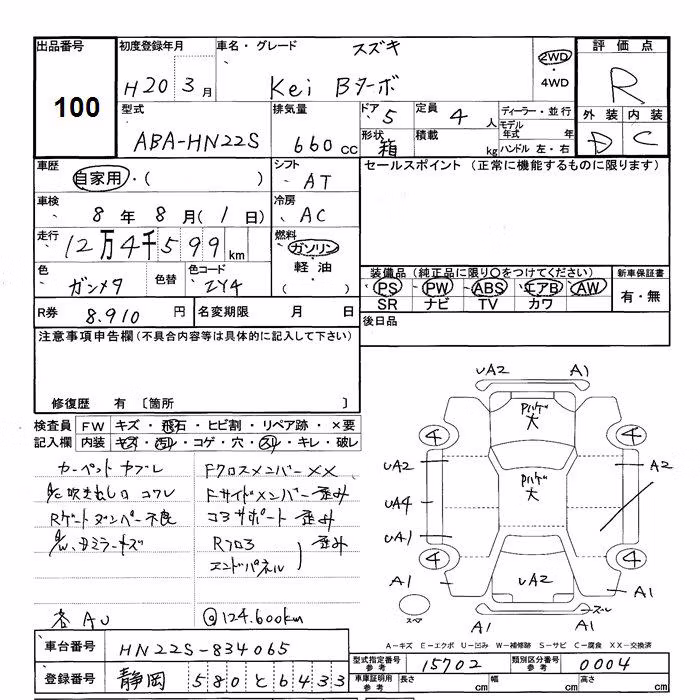 出品番号
100
初度登録年月
H20 3月
車名・グレード
スズキ
Kei Bターボ
2WD
・
4WD
評価点
R
外装 内装
D C
型式
ABA-HN22S
排気量
660 cc
ドア 5
形状 箱
定員 4 人
積載 kg
ディーラー・並行
モデル年式 年
ハンドル 左・右
車歴
自家用・( )
シフト
AT
セールスポイント (正常に機能するものに限ります)
車検
8年8月(1日)
冷房
AC
走行
12万4千599km
燃料
ガソリン
軽油
( )
色
ガンメタ
色替
色コード
ZY4
装備品(純正品に限り○をつけてください)
PS PW ABS エアB AW
SR ナビ TV カワ
新車保証書
有・無
R券 8.910 円
名変期限 月 日
後日品
注意事項申告欄(不具合内容等は具体的に記入して下さい)
修復歴 有 〔箇所 〕
検査員記入欄
FW キズ・飛石・ヒビ割・リペア跡・×要
内装 キズ・汚れ・コゲ・穴・スレ・キレ・破レ
カーペットカブレ
吹き出し口コワレ
Rゲートダンパー不良
ミラーキズ
各AU
Fクロスメンバー××
Fサイドメンバー歪み
コアサポート歪み
Rフロア
エンドパネル
歪み
@124.600km
UA2
A1
大
4
4
UA2
A2
大
UA4
UA1
4
4
A1
UA2
A1
スペア
A1
A1
A－キズ E－エクボ U－凹み W－補修跡 S－サビ C－腐食 XX－交換済
車台番号
HN22S-834065
登録番号
静岡 580 と 6433
型式指定番号
参考
15702
類別区分番号
参考
0004
車庫証明用
参考
長さ cm
幅 cm
高さ cm